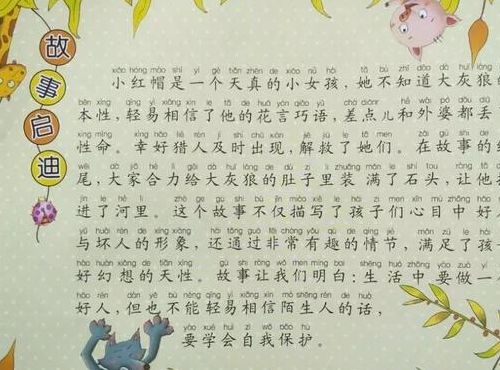 故事启迪
xiǎo hóng mào shì yí gè tiān zhēn de xiǎo nǚ hái tā bù zhī dào dà huī láng
小红帽是一个天真的小女孩，她不知道大灰狼
běn xìng qīng yì xiāng xìn le tā de huā yán qiǎo yǔ chà diǎnr hé wài pó dōu diū
本性，轻易相信了他的花言巧语，差点儿和外婆都丢
xìng mìng xìng hǎo liè rén jí shí chū xiàn jiě jiù le tā men zài gù shi de
性命。幸好猎人及时出现，解救了她们。在故事的
wěi dà jiā hé lì gěi dà huī láng de dù zi lǐ zhuāng mǎn le shí tou ràng tā
尾，大家合力给大灰狼的肚子里装 满了石头，让他
jìn le hé lǐ zhè ge gù shi bù jǐn miáo xiě le hái zi men xīn mù zhōng hǎo
进了河里。这个故事不仅描写了孩子们心目中 好
yǔ huài rén de xíng xiàng hái tōng guò fēi cháng yǒu qù de qíng jié mǎn zú le hái
与坏人的形象，还通过非常有趣的情节，满足了孩
hào huàn xiǎng de tiān xìng gù shi ràng wǒ men míng bai shēng huó zhōng yào zuò yí
好幻想的天性。故事让我们明白：生活中要做一
hǎo rén dàn yě bù néng qīng yì xiāng xìn mò shēng rén de huà
好人，但也不能轻易相信陌生人的话，
yào xué huì zì wǒ bǎo hù
要学会自我保护。